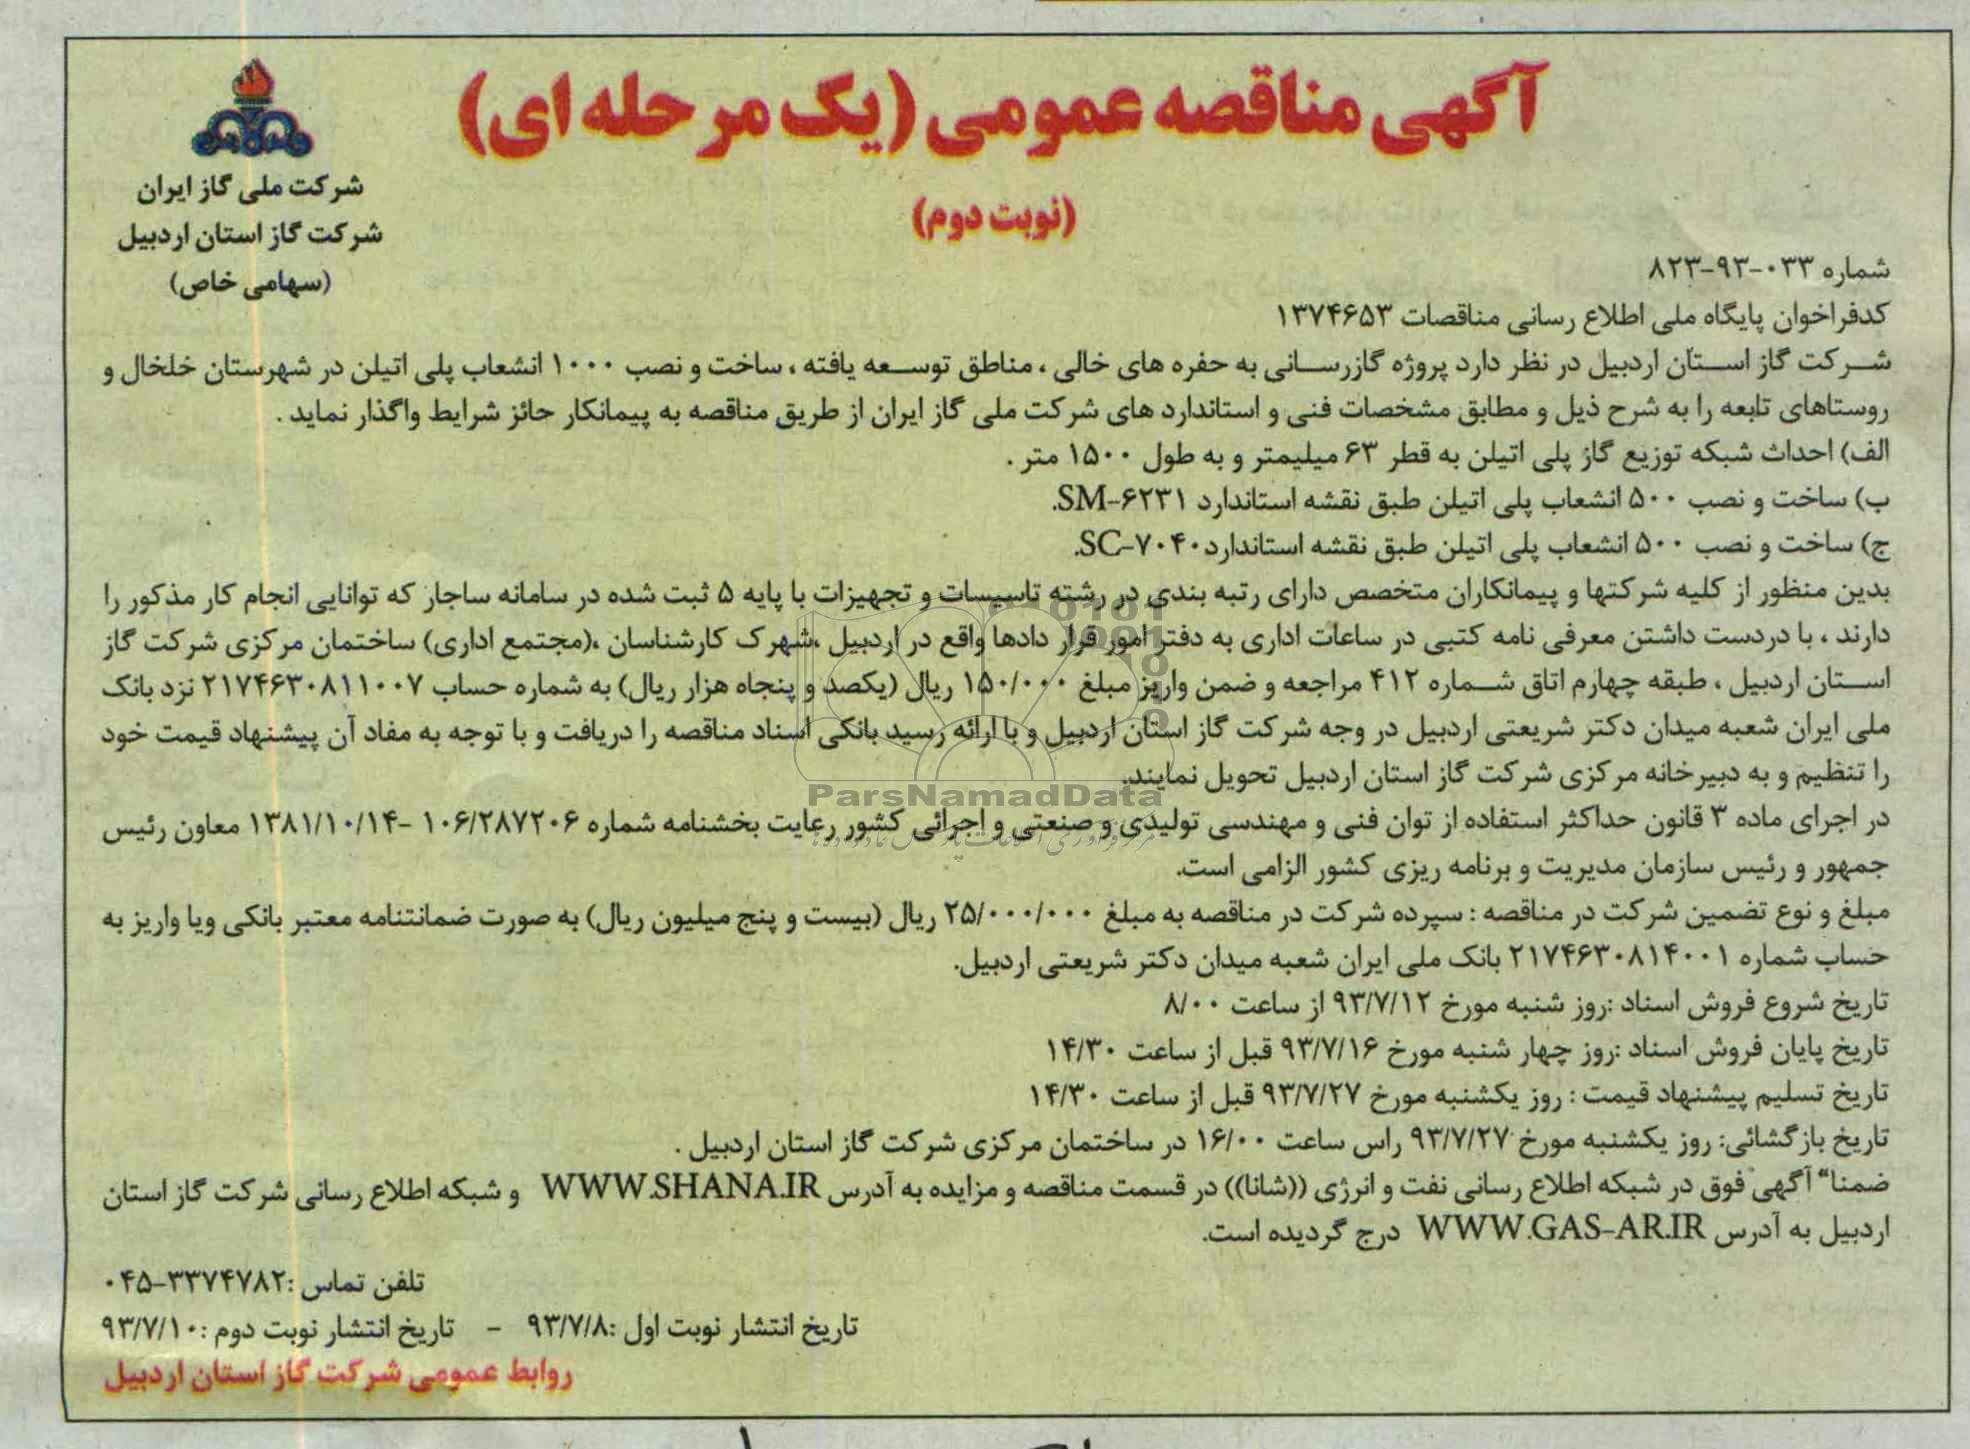 آگهی مناقصه عمومی (یک مرحله ای)
(نوبت دوم)
شرکت ملی گاز ایران
شرکت گاز استان اردبیل
(سهامی خاص)
شماره ۰۳۳-۹۳-۸۲۳
کدفراخوان پایگاه ملی اطلاع رسانی مناقصات ۱۳۷۴۶۵۳
شرکت گاز استان اردبیل در نظر دارد پروژه گازرسانی به حفره های خالی ، مناطق توسعه یافته ، ساخت و نصب ۱۰۰۰ انشعاب پلی اتیلن در شهرستان خلخال و
روستاهای تابعه را به شرح ذیل و مطابق مشخصات فنی و استاندارد های شرکت ملی گاز ایران از طریق مناقصه به پیمانکار حائز شرایط واگذار نماید .
الف) احداث شبکه توزیع گاز پلی اتیلن به قطر ۶۳ میلیمتر و به طول ۱۵۰۰ متر .
ب) ساخت و نصب ۵۰۰ انشعاب پلی اتیلن طبق نقشه استاندارد SM-۶۲۳۱.
ج) ساخت و نصب ۵۰۰ انشعاب پلی اتیلن طبق نقشه استاندارد SC-۷۰۴۰.
بدین منظور از کلیه شرکتها و پیمانکاران متخصص دارای رتبه بندی در رشته تاسیسات و تجهیزات با پایه ۵ ثبت شده در سامانه ساجار که توانایی انجام کار مذکور را
دارند ، با دردست داشتن معرفی نامه کتبی در ساعات اداری به دفتر امور قرار دادها واقع در اردبیل ،شهرک کارشناسان ،(مجتمع اداری) ساختمان مرکزی شرکت گاز
استان اردبیل ، طبقه چهارم اتاق شماره ۴۱۲ مراجعه و ضمن واریز مبلغ ۱۵۰/۰۰۰ ریال (یکصد و پنجاه هزار ریال) به شماره حساب ۲۱۷۴۶۳۰۸۱۱۰۰۷ نزد بانک
ملی ایران شعبه میدان دکتر شریعتی اردبیل در وجه شرکت گاز استان اردبیل و با ارائه رسید بانکی اسناد مناقصه را دریافت و با توجه به مفاد آن پیشنهاد قیمت خود
را تنظیم و به دبیرخانه مرکزی شرکت گاز استان اردبیل تحویل نمایند.
ParsNamadData
در اجرای ماده ۳ قانون حداکثر استفاده از توان فنی و مهندسی تولیدی و صنعتی و اجرائی کشور رعایت بخشنامه شماره ۱۰۶/۲۸۷۲۰۶ -۱۳۸۱/۱۰/۱۴ معاون رئیس
جمهور و رئیس سازمان مدیریت و برنامه ریزی کشور الزامی است.
مبلغ و نوع تضمین شرکت در مناقصه : سپرده شرکت در مناقصه به مبلغ ۲۵/۰۰۰/۰۰۰ ریال (بیست و پنج میلیون ریال) به صورت ضمانتنامه معتبر بانکی ویا واریز به
حساب شماره ۲۱۷۴۶۳۰۸۱۴۰۰۱ بانک ملی ایران شعبه میدان دکتر شریعتی اردبیل.
تاریخ شروع فروش اسناد :روز شنبه مورخ ۹۳/۷/۱۲ از ساعت ۸/۰۰
تاریخ پایان فروش اسناد :روز چهار شنبه مورخ ۹۳/۷/۱۶ قبل از ساعت ۱۴/۳۰
تاریخ تسلیم پیشنهاد قیمت : روز یکشنبه مورخ ۹۳/۷/۲۷ قبل از ساعت ۱۴/۳۰
تاریخ بازگشائی: روز یکشنبه مورخ ۹۳/۷/۲۷ راس ساعت ۱۶/۰۰ در ساختمان مرکزی شرکت گاز استان اردبیل .
ضمنا" آگهی فوق در شبکه اطلاع رسانی نفت و انرژی ((شانا)) در قسمت مناقصه و مزایده به آدرس WWW.SHANA.IR و شبکه اطلاع رسانی شرکت گاز استان
اردبیل به آدرس WWW.GAS-AR.IR درج گردیده است.
تلفن تماس :۳۳۷۴۷۸۲-۰۴۵
تاریخ انتشار نوبت اول :۹۳/۷/۸ - تاریخ انتشار نوبت دوم :۹۳/۷/۱۰
روابط عمومی شرکت گاز استان اردبیل